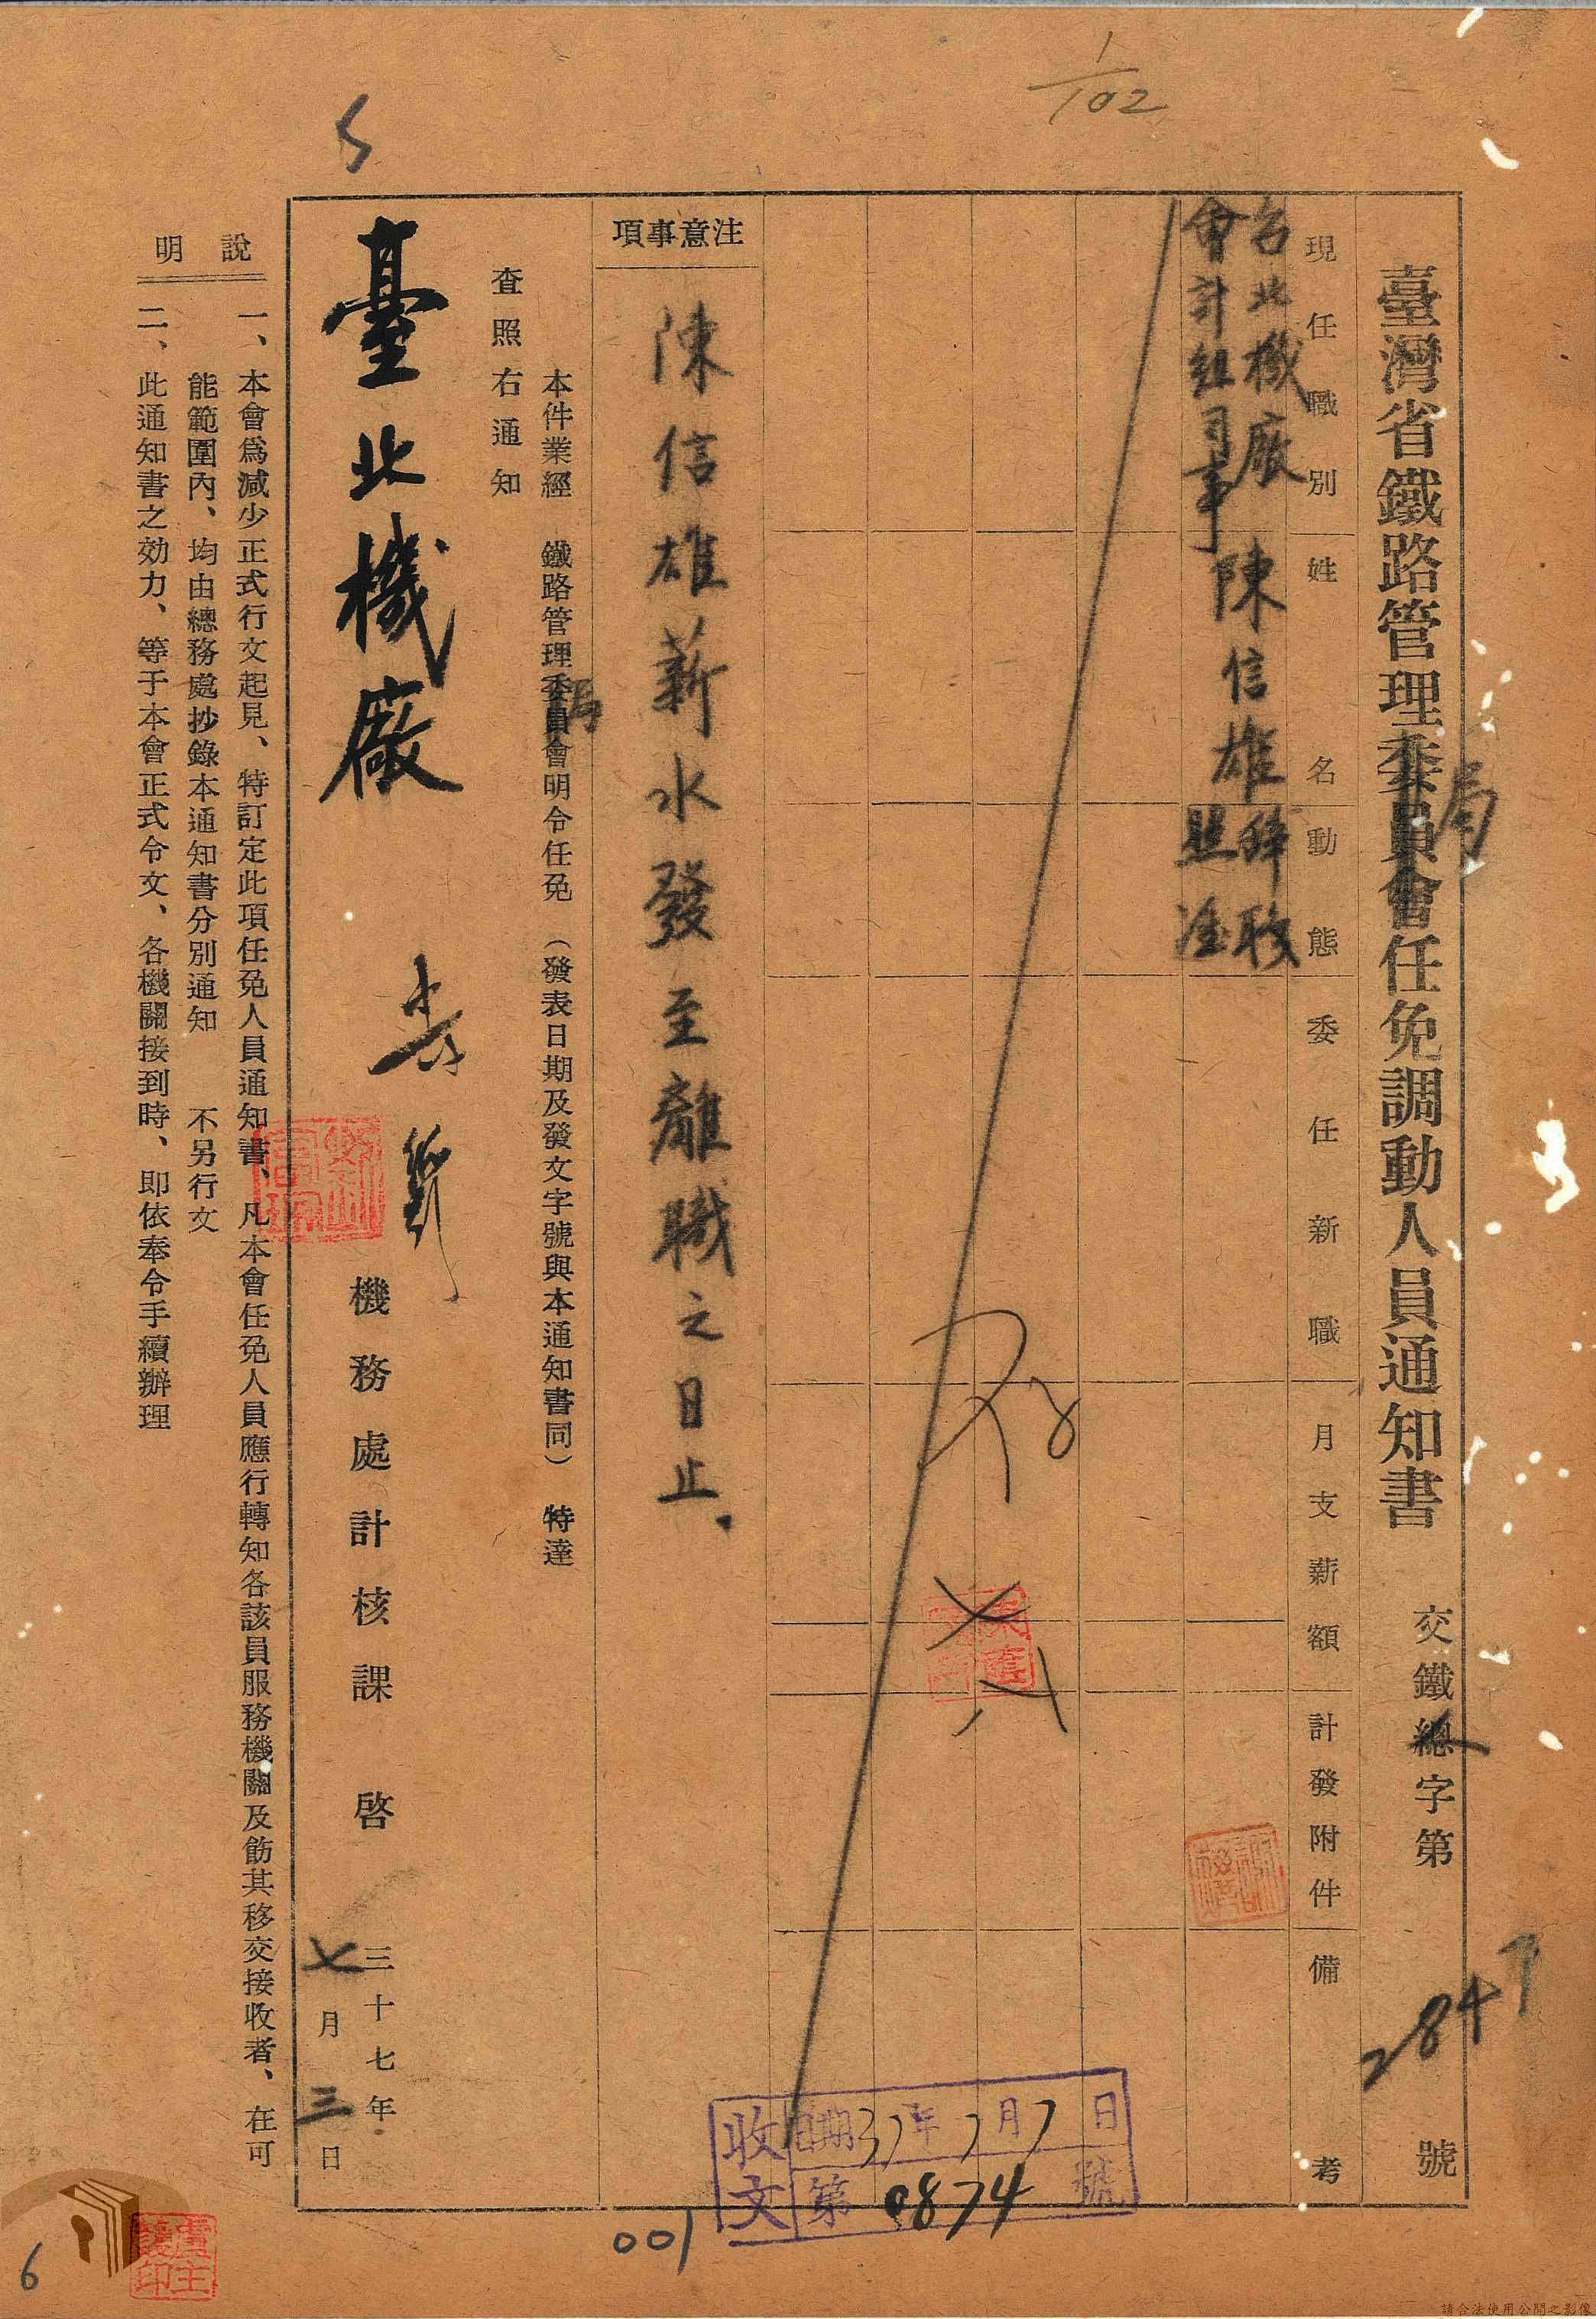 1/102
臺灣省鐵路管理委員會任免調動人員通知書
局
交鐵總字第 2847 號
人
現任職別 姓名 動態 委任新職 月支薪額 計發附件 備考
台北機廠
會計組司事
陳信雄
辭職
照准
注意事項
陳信雄薪水發至離職之日止、
本件業經 鐵路管理委員會明令任免 (發表日期及發文字號與本通知書同) 特達
局
查照右通知
臺北機廠
機務處計核課 啓
三十七年
七月三日
說明
一、本會爲減少正式行文起見、特訂定此項任免人員通知書、凡本會任免人員應行轉知各該員服務機關及飭其移交接收者、在可
能範圍內、均由總務處抄錄本通知書分別通知 不另行文
二、此通知書之効力、等于本會正式令文、各機關接到時、卽依奉令手續辦理
收文
日期37年7月7日
第0874號
001
6
請合法使用公開之影像